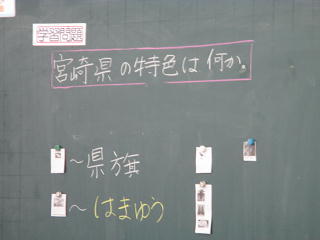 学習問題
宮崎県の特色は何か。
〜県旗
〜はまゆう